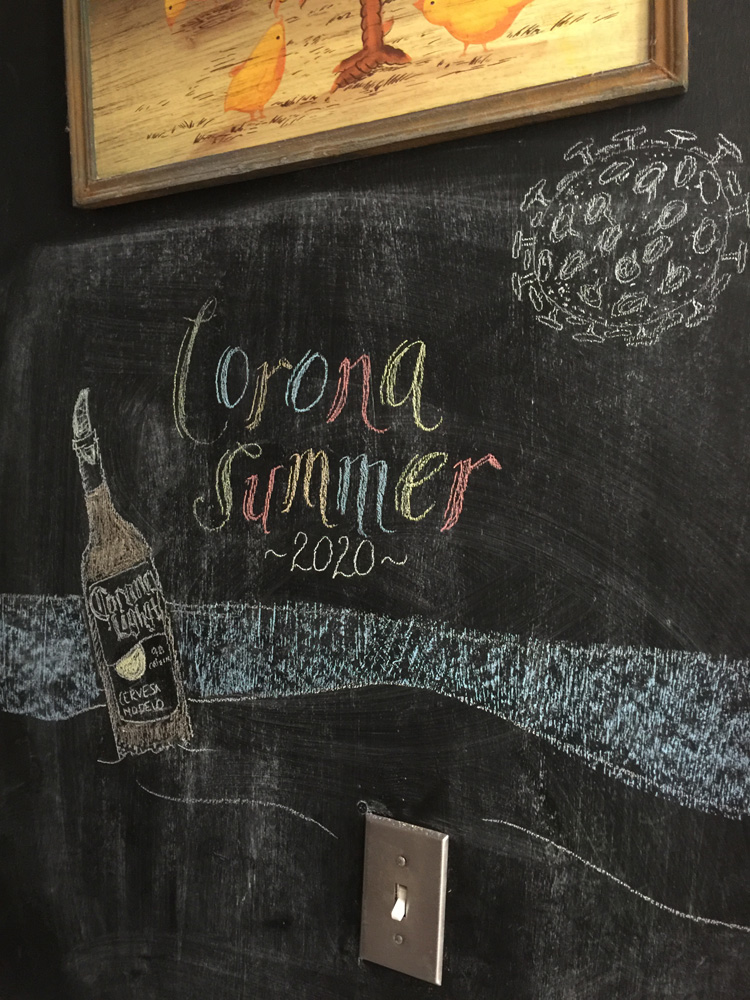 Corona
Summer
~2020~
Corona
Light
CERVESA
MODELO